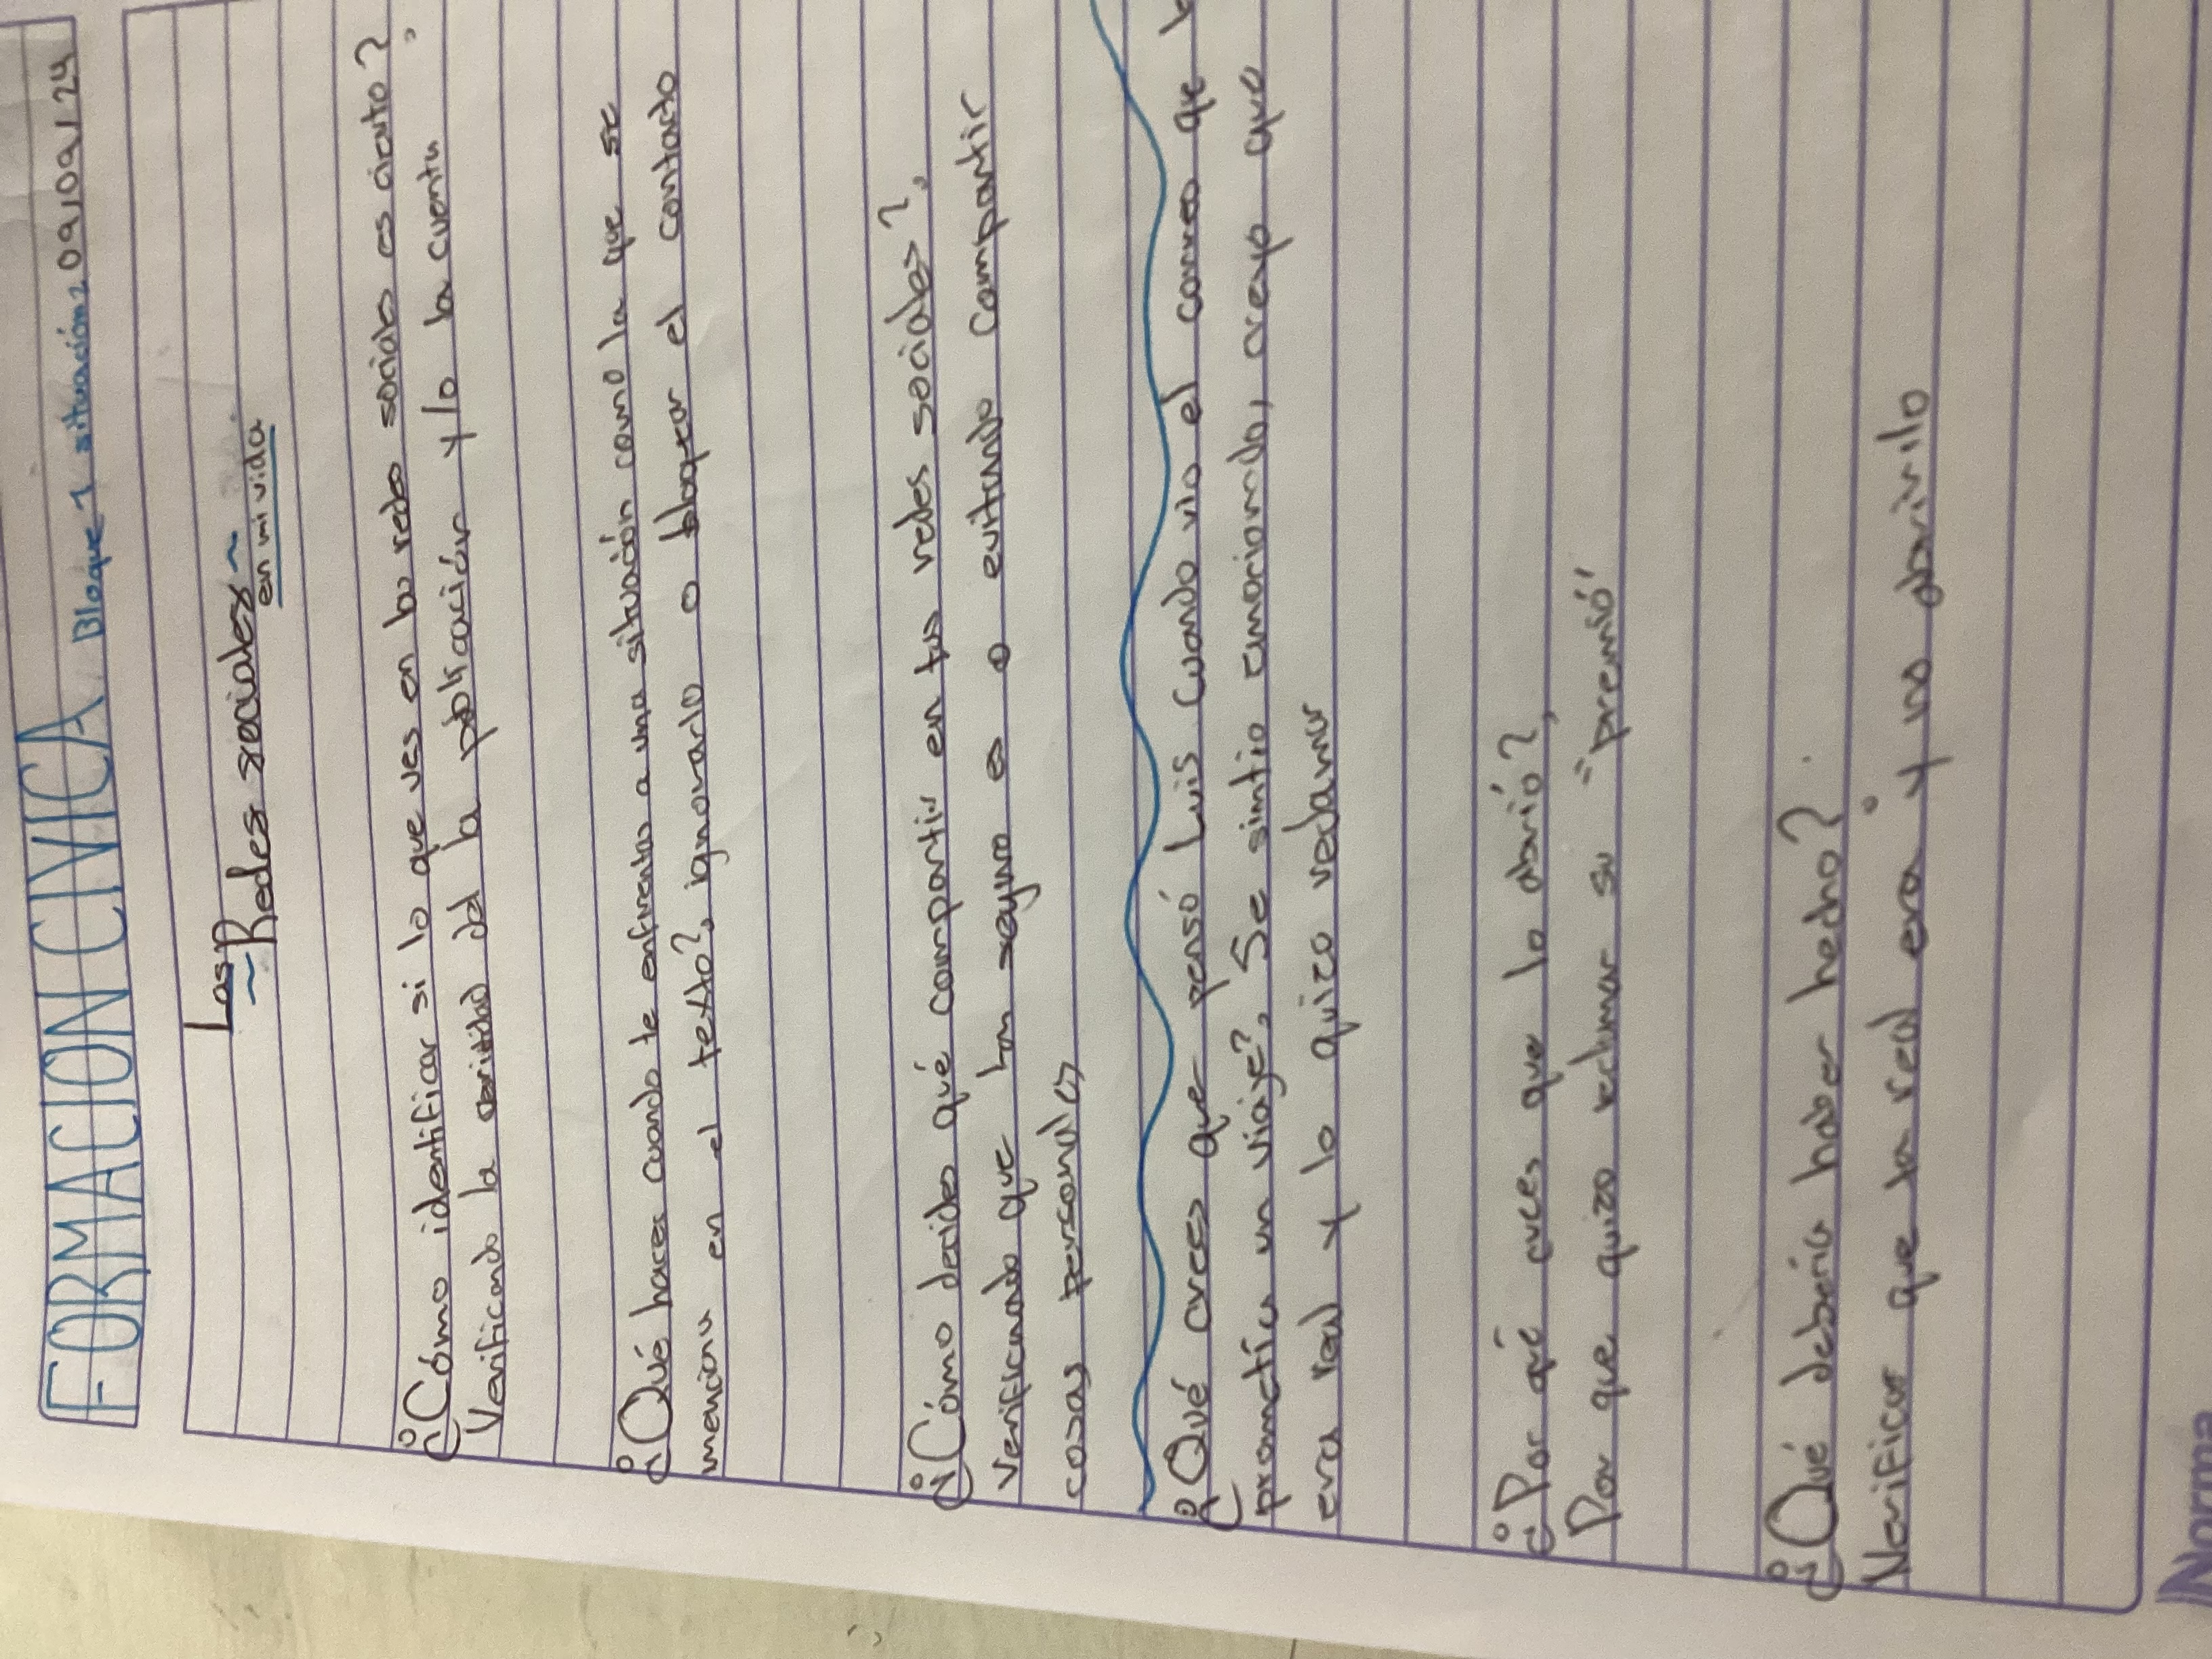 FORMACION CIVICA Bloque 1 situación 2 09/09/24
Las
~Redes sociales~
en mi vida
¿Cómo identificar si lo que ves en las redes sociales es cierto?
Verificando la del la publicación y/o la cuenta
¿Qué haces cuando te enfrentas a una situación como la que se
menciona en el texto?, ignorarlo o bloquear el contacto
¿Cómo decides qué compartir en tus redes sociales?,
Verificando que tan seguro es o evitando compartir
cosas personales
¿Qué crees que pensó Luis cuando vio el correo que
prometía un viaje?, Se sintio emocionado, creyo que
era real y lo quizo reclamar
¿Por qué crees que lo abrió?,
Por que quizo reclamar su "premio"
¿Qué debería haber hecho?
Verificar que tan real era y no abrirlo
Norma